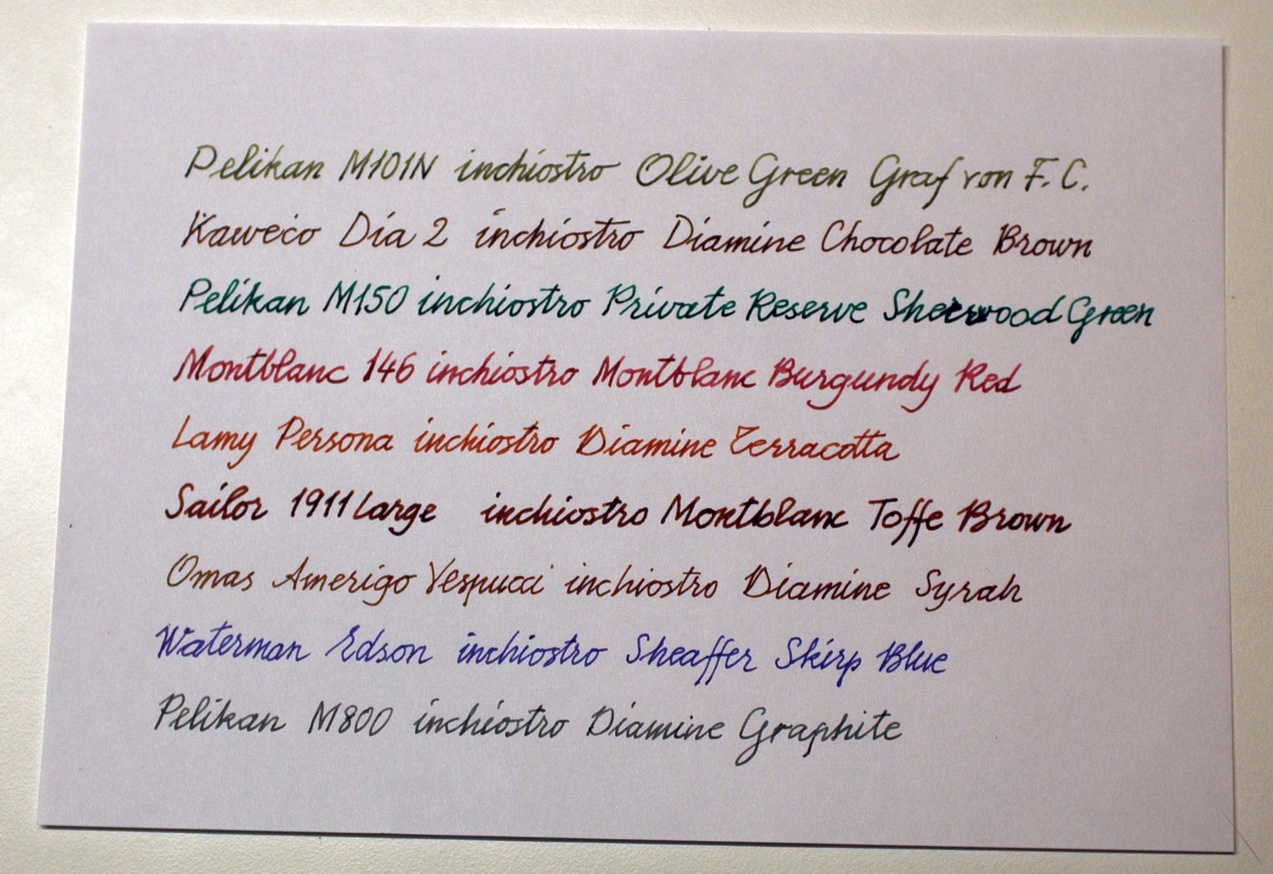 Pelikan M101N inchiostro Olive Green Graf von F. C.
Kaweco Dia 2 inchiostro Diamine Chocolate Brown
Pelikan M150 inchiostro Private Reserve Sherwood Green
Montblanc 146 inchiostro Montblanc Burgundy Red
Lamy Persona inchiostro Diamine Terracotta
Sailor 1911 Large inchiostro Montblanc Toffe Brown
Omas Amerigo Vespucci inchiostro Diamine Syrah
Waterman Edson inchiostro Sheaffer Skirp Blue
Pelikan M800 inchiostro Diamine Graphite